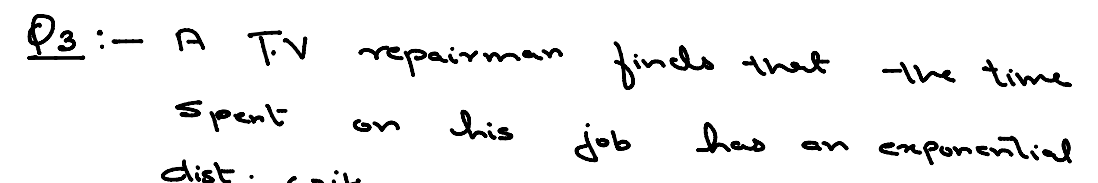 Q3 :- A T.V repairman finds that the time
spent on his job has an exponential
dist.